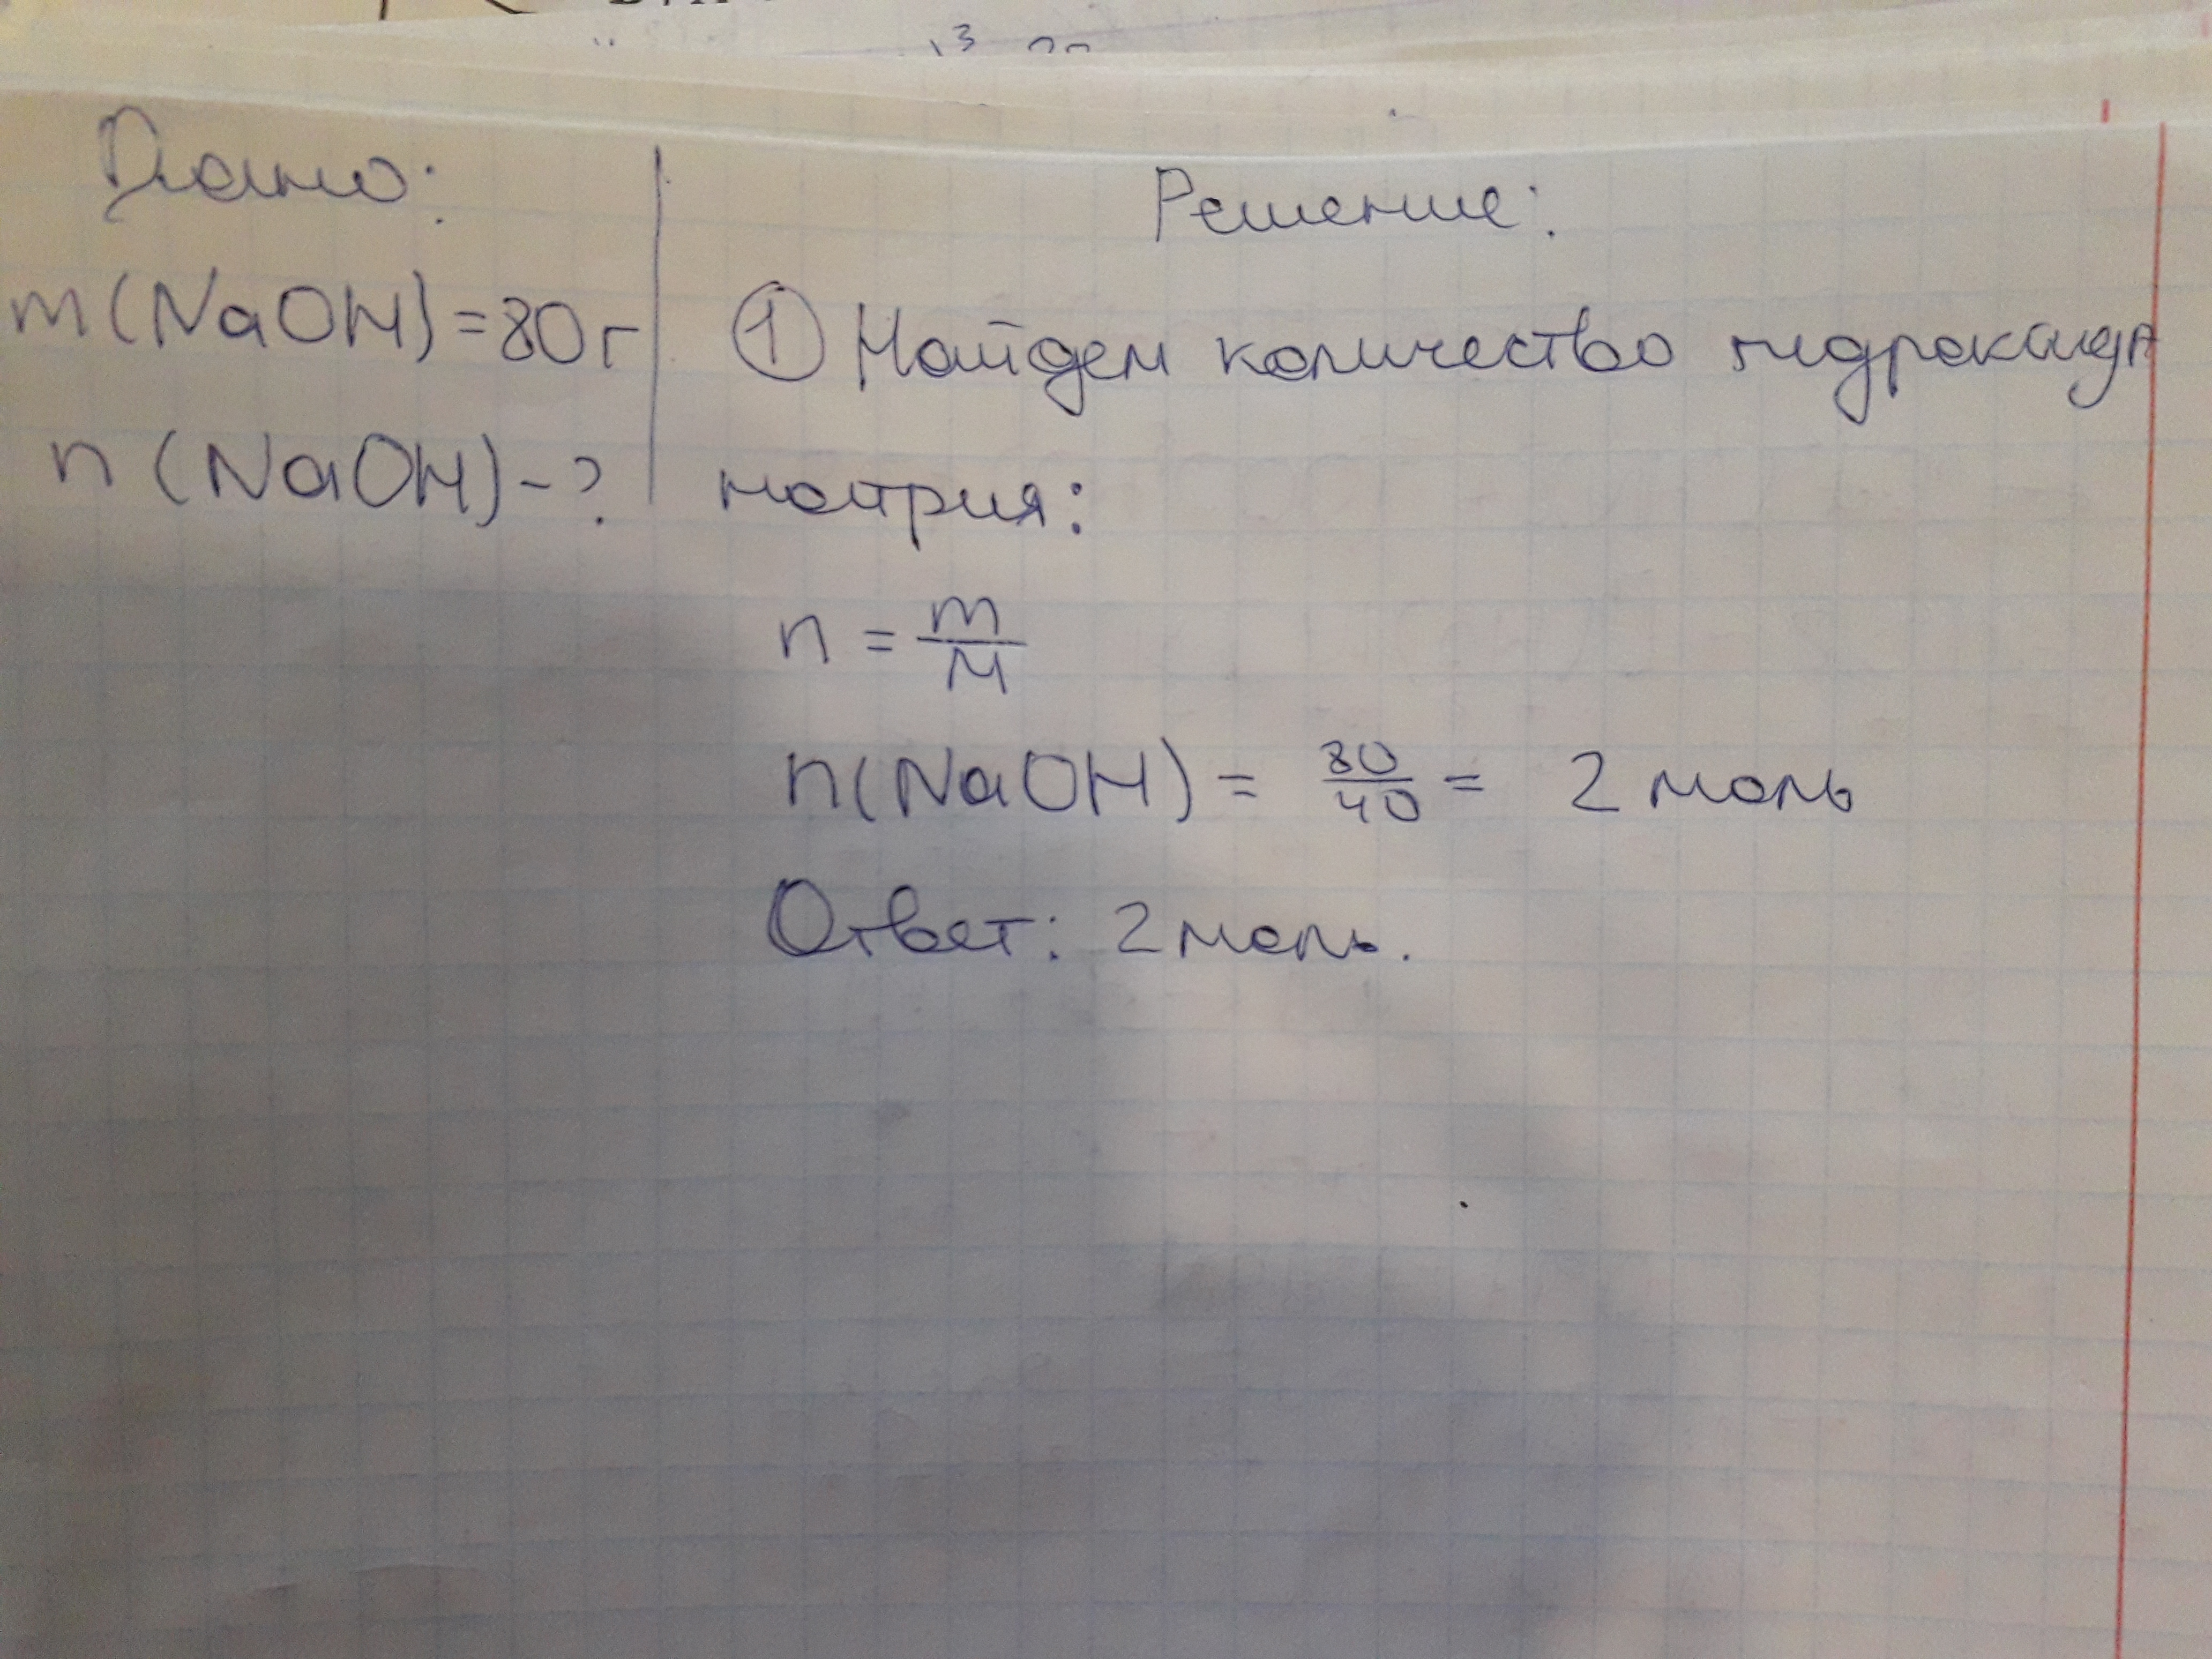 Дано:
m(NaOH)=80г
n(NaOH)-?
Решение:
① Найдем количество гидроксида
натрия:
n = m/M
n(NaOH) = 80/40 = 2 моль
Ответ: 2 моль.